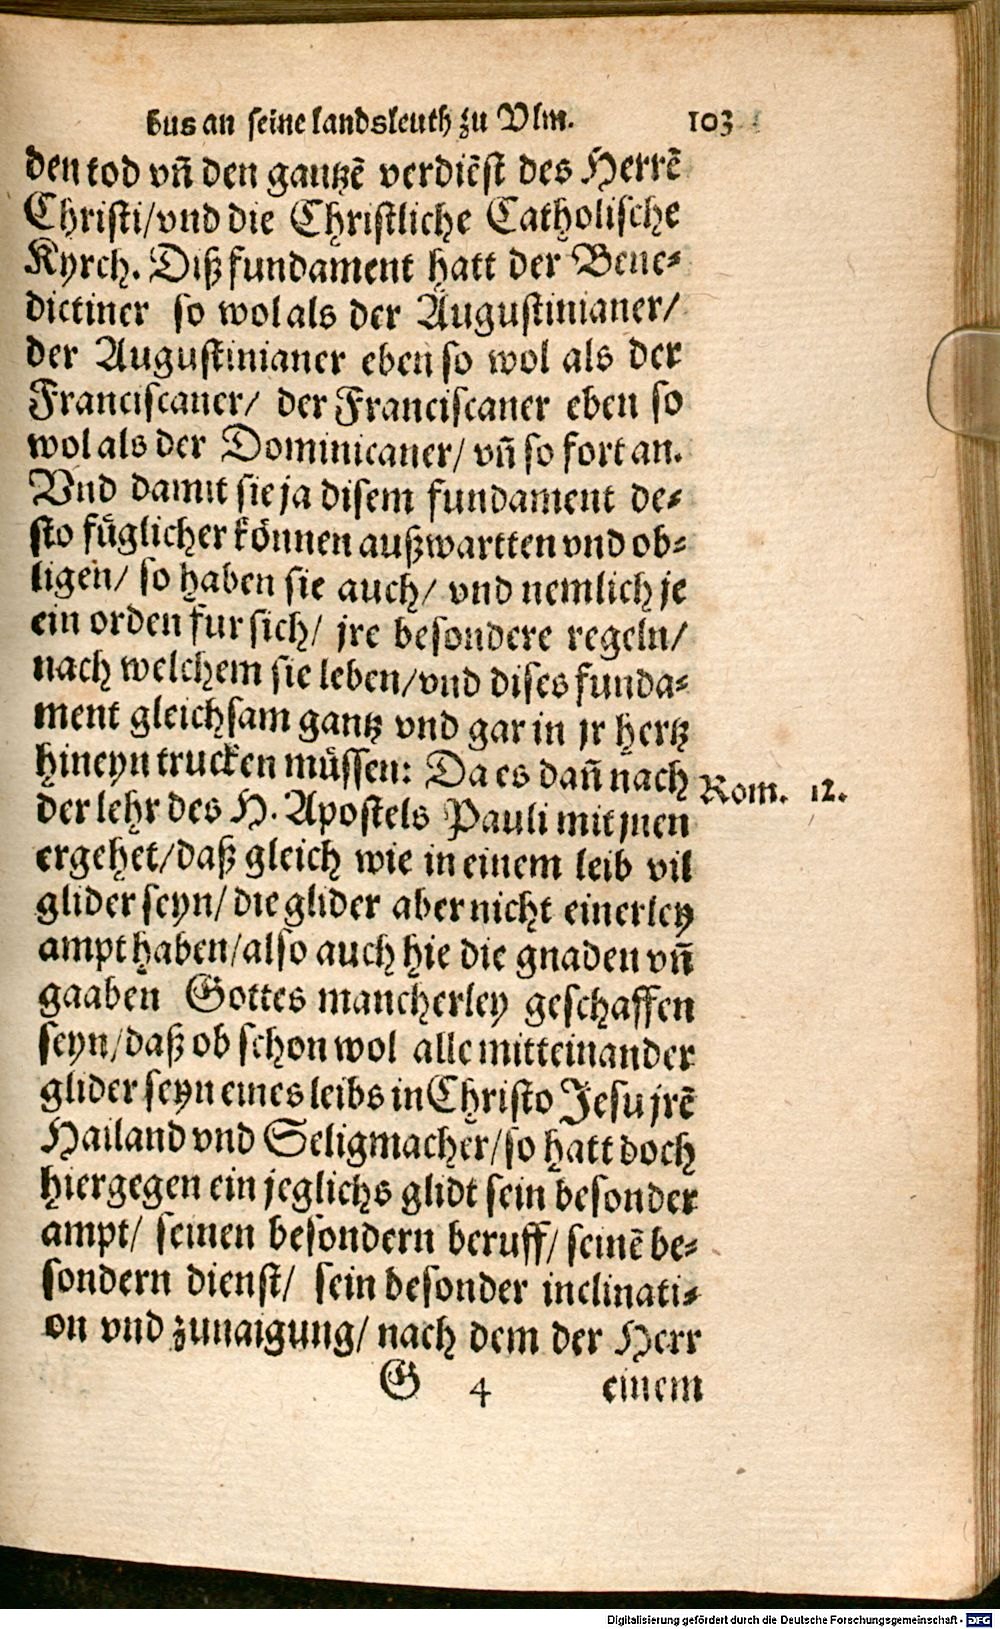 bus an seine landsleuth zu Vlm. 103
den tod vñ den gantzẽ verdiẽst des Herrẽ
Christi/vnd die Christliche Catholische
Kyrch. Diß fundament hatt der Bene-
dictiner so wol als der Augustinianer/
der Augustinianer eben so wol als der
Franciscaner/ der Franciscaner eben so
wol als der Dominicaner/ vñ so fort an.
Vnd damit sie ja disem fundament de-
sto füglicher können außwartten vnd ob-
ligen/ so haben sie auch/ vnd nemlich je
ein orden fur sich/ jre besondere regeln/
nach welchem sie leben/vnd dises funda-
ment gleichsam gantz vnd gar in jr hertz
hineyn trucken müssen: Da es dañ nach
Rom. 12.
der lehr des H. Apostels Pauli mit jnen
ergehet/daß gleich wie in einem leib vil
glider seyn/ die glider aber nicht einerley
ampt haben/also auch hie die gnaden vñ
gaaben Gottes mancherley geschaffen
seyn/daß ob schon wol alle mitteinander
glider seyn eines leibs in Christo Jesu jrẽ
Hailand vnd Seligmacher/so hatt doch
hiergegen ein jeglichs glidt sein besonder
ampt/ seinen besondern beruff/ seinẽ be-
sondern dienst/ sein besonder inclinati-
on vnd zunaigung/ nach dem der Herr
G 4 einem
Digitalisierung gefördert durch die Deutsche Forschungsgemeinschaft - DFG